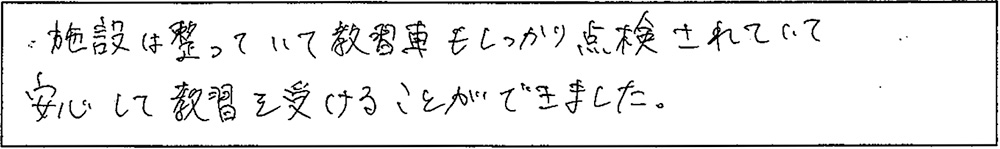 施設は整っていて教習車もしっかり点検されていて
安心して教習を受けることができました。